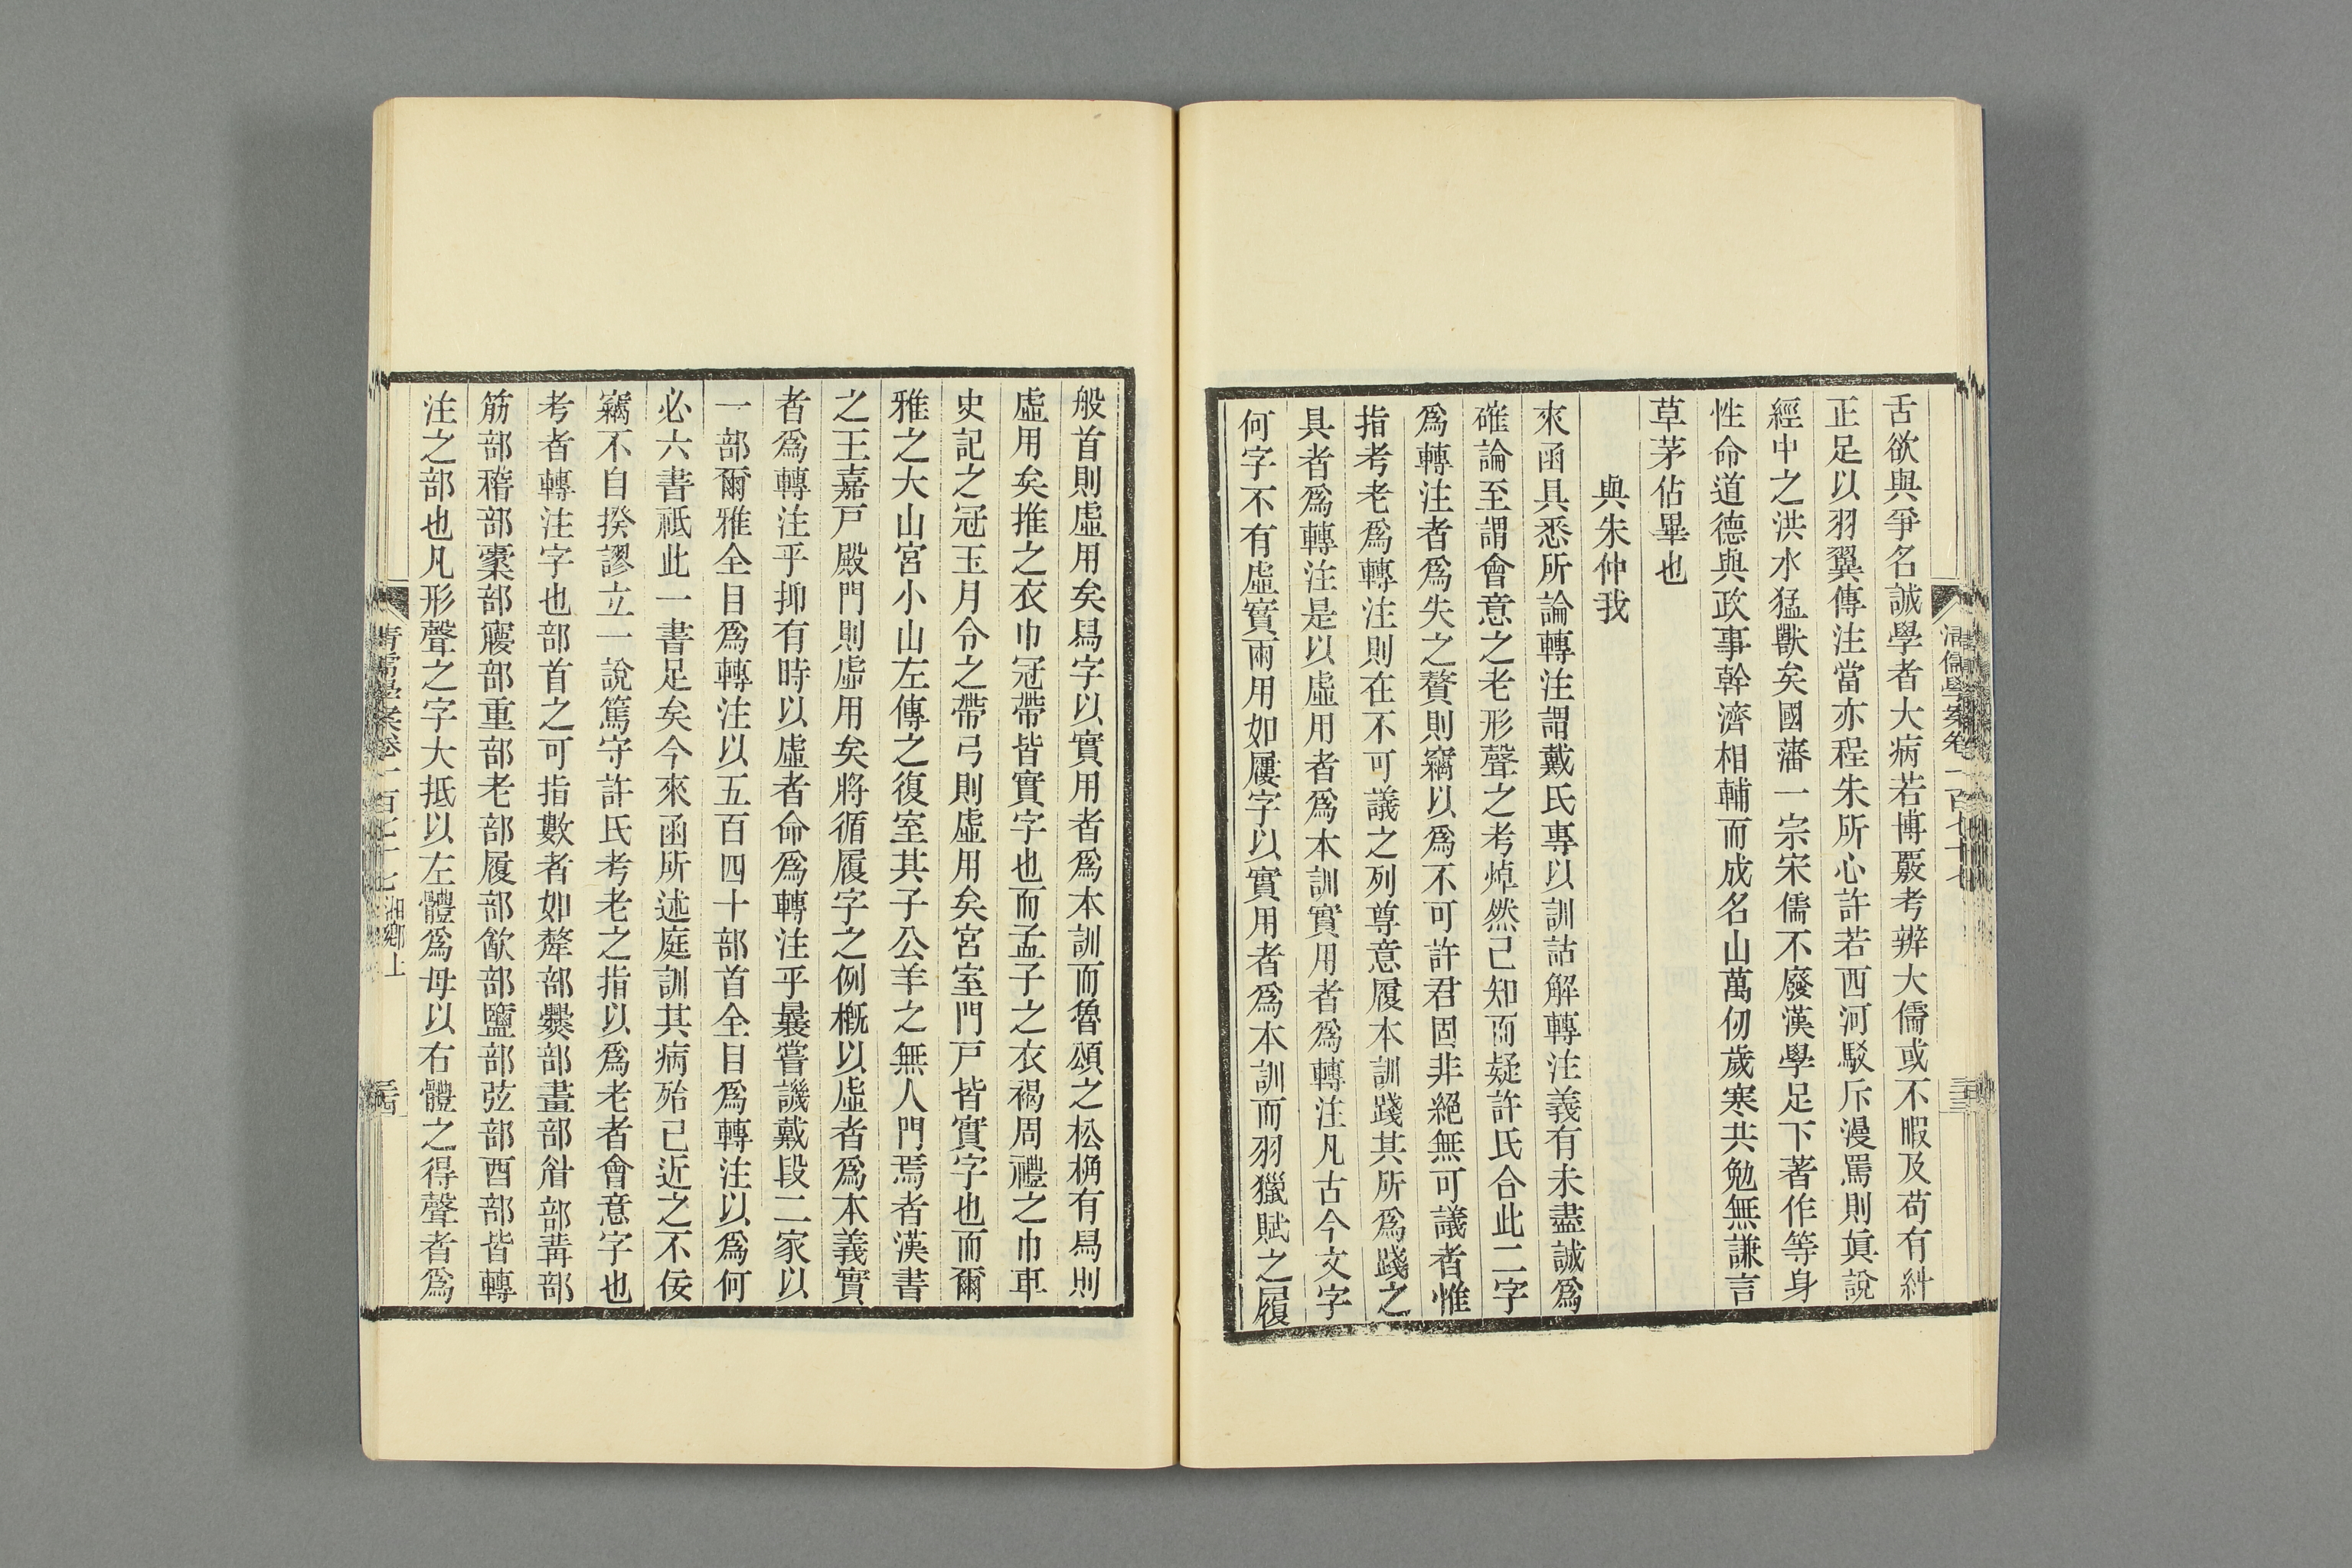 舌欲與爭名誠學者大病若博覈考辨大儒或不暇及苟有糾
正足以羽翼傳注當亦程朱所心許若西河駁斥漫罵則眞說
經中之洪水猛獸矣國藩一宗宋儒不廢漢學足下著作等身
性命道德與政事幹濟相輔而成名山萬仞歲寒共勉無謙言
草茅佔畢也
與朱仲我
來函具悉所論轉注謂戴氏專以訓詁解轉注義有未盡誠爲
確論至謂會意之老形聲之考焯然已知而疑許氏合此二字
爲轉注者爲失之贅則竊以爲不可許君固非絕無可議者惟
指考老爲轉注則在不可議之列尊意履本訓踐其所爲踐之
具者爲轉注是以虛用者爲本訓實用者爲轉注凡古今文字
何字不有虛實兩用如屨字以實用者爲本訓而羽獵賦之履
般首則虛用矣舄字以實用者爲本訓而魯頌之松桷有舄則
虛用矣推之衣巾冠帶皆實字也而孟子之衣褐周禮之巾車
史記之冠玉月令之帶弓則虛用矣宮室門戸皆實字也而爾
雅之大山宮小山左傳之復室其子公羊之無人門焉者漢書
之王嘉戸殿門則虛用矣將循履字之例槪以虛者爲本義實
者爲轉注乎抑有時以虛者命爲轉注乎曩嘗譏戴段二家以
一部爾雅全目爲轉注以五百四十部首全目爲轉注以爲何
必六書祗此一書足矣今來函所述庭訓其病殆已近之不佞
竊不自揆謬立一說篤守許氏考老之指以爲老者會意字也
考者轉注字也部首之可指數者如犛部爨部畫部眉部冓部
筋部稽部㯻部㝱部重部老部履部㱃部鹽部弦部酉部皆轉
注之部也凡形聲之字大抵以左體爲母以右體之得聲者爲
清儒學案卷一百七十七
三十三
清儒學案卷一百七十七 湘鄉上
三十四